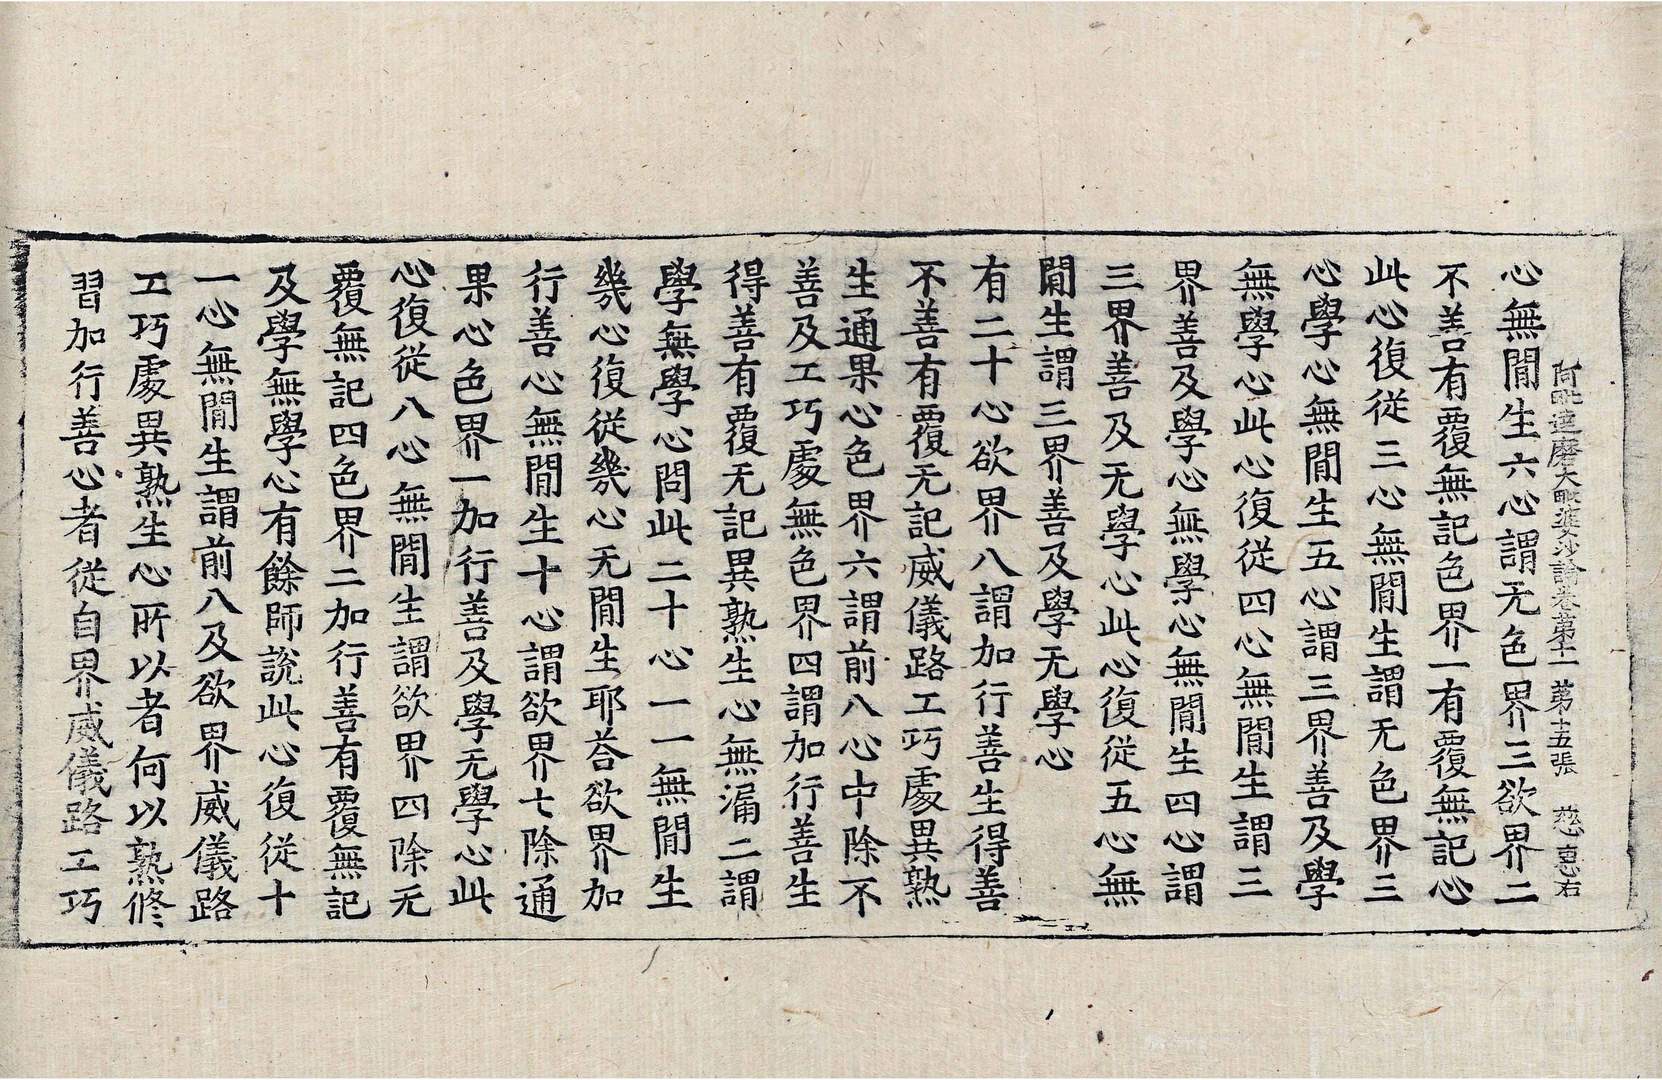 阿毗達磨大毗婆沙論卷第十一 第十五張 慈 惠右
心無閒生六心謂无色界三欲界二
不善有覆無記色界一有覆無記心
此心復從三心無閒生謂无色界三
心學心無閒生五心謂三界善及學
無學心此心復從四心無閒生謂三
界善及學心無學心無閒生四心謂
三界善及无學心此心復從五心無
閒生謂三界善及學无學心
有二十心欲界八謂加行善生得善
不善有覆无記威儀路工巧處異熟
生通果心色界六謂前八心中除不
善及工巧處無色界四謂加行善生
得善有覆无記異熟生心無漏二謂
學無學心問此二十心一一無閒生
幾心復從幾心无閒生耶荅欲界加
行善心無閒生十心謂欲界七除通
果心色界一加行善及學无學心此
心復從八心無閒生謂欲界四除无
覆無記四色界二加行善有覆無記
及學無學心有餘師說此心復從十
一心無閒生謂前八及欲界威儀路
工巧處異熟生心所以者何以熟修
習加行善心者從自界威儀路工巧